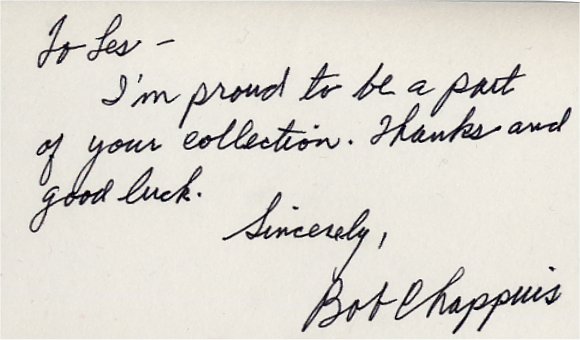 To Les -
I'm proud to be a part
of your collection. Thanks and
good luck.
Sincerely,
Bob Chappuis